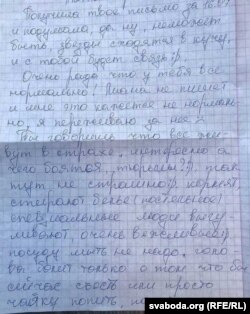 Получила твоё письмо за 16.07
и подумала, да ну, не может
быть, звёзды сходятся в кучу,
и с тобой будет связь?).
Очень рада что у тебя всё
нормально! Мама не пишет
и мне это кажется не нормаль
но, я переживаю за неё?
Ты говоришь что все жи-
вут в страхе, интересно а
чего боятся, тюрьмы?). так
тут не страшно?) кормят,
стирают бельё (постельное)
специальные люди
очень вежливые)
посуду мыть не надо, голо
ва болит только о том что бы
сейчас съесть или просто
чайку попить,
svaboda.org (RFE/RL)